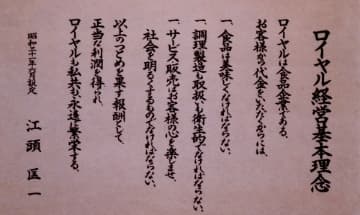 ロイヤル経営基本理念
ロイヤルは食品企業である、
お客様から代金をいただくからには、
一、食品は美味しくなければならない、
一、調理製造も取扱いも衛生的でなければならない、
一、サービス・販売はお客様の心を楽しませ、
社会を明るくするものでなければならない、
以上のつとめを果す報酬として、
正当な利潤を得られ、
ロイヤルも私共も、永遠に繁栄する、
江頭匡一